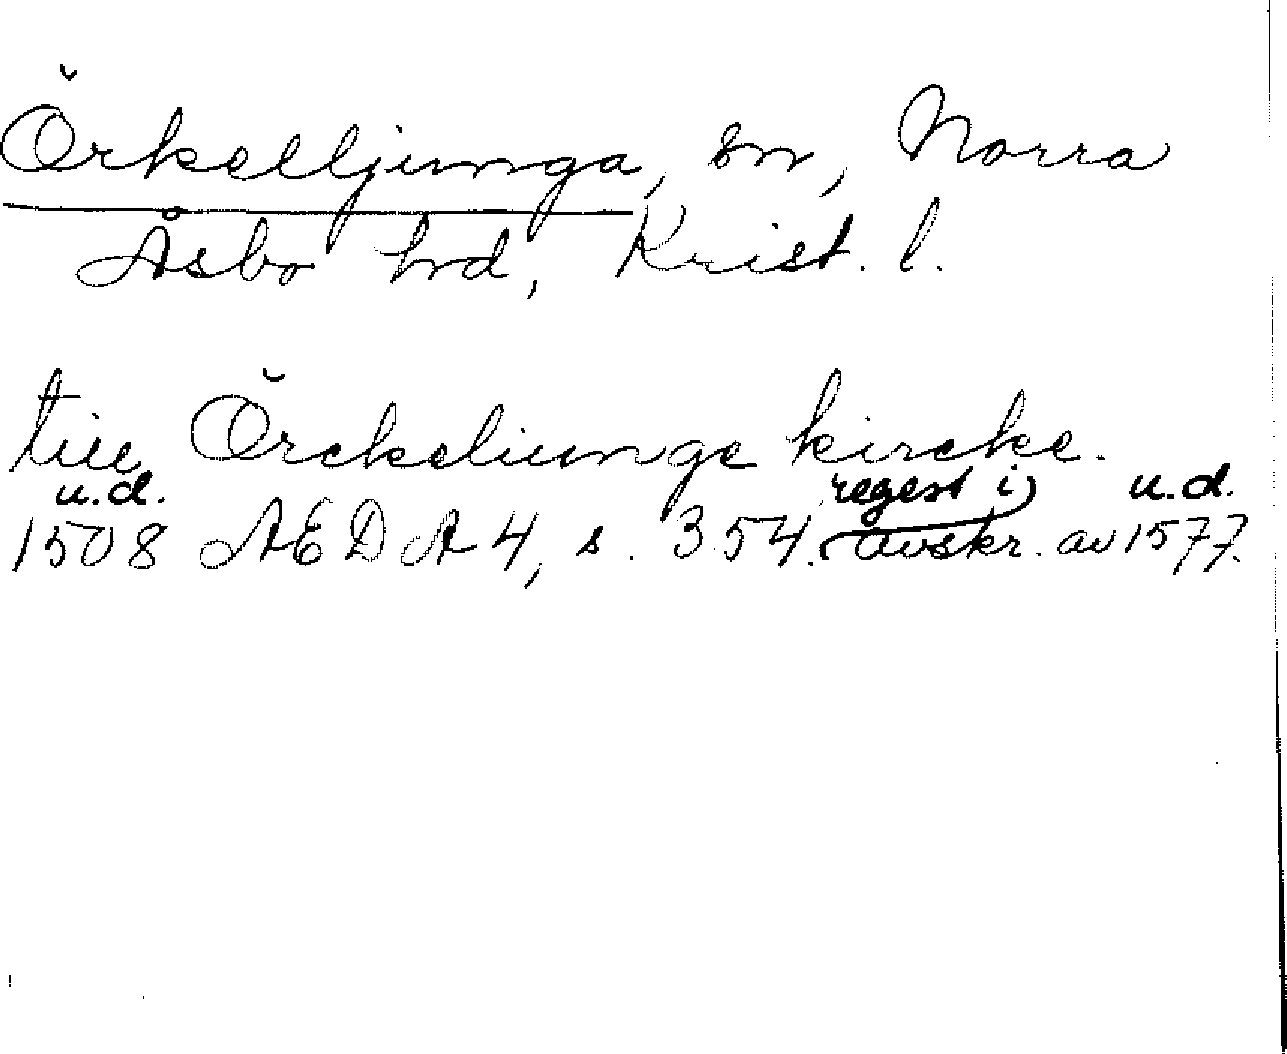 Örkelljunga, sn, Norra
Åsbo hrd, Krist. l.
till Örckeliunge kircke.
u.d. regest i u.d.
1508 AEDA 4, s. 354. avskr. av 1577.